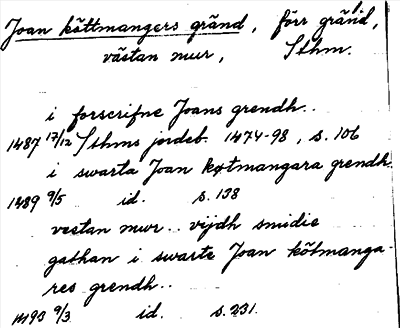 Joan köttmangers gränd, förr gränd,
västan mur, Sthm.
i forscrifne Joans grendh..
1487 17/12 Sthms jordeb. 1474-98, s. 106
i swarta Joan køtmangara grendh.
1489 9/5 id. s. 138
vestan mwr.. vijdh smidie
gathan i swarte Joan kötmanga-
res grendh..
1493 9/3 id. s. 231.